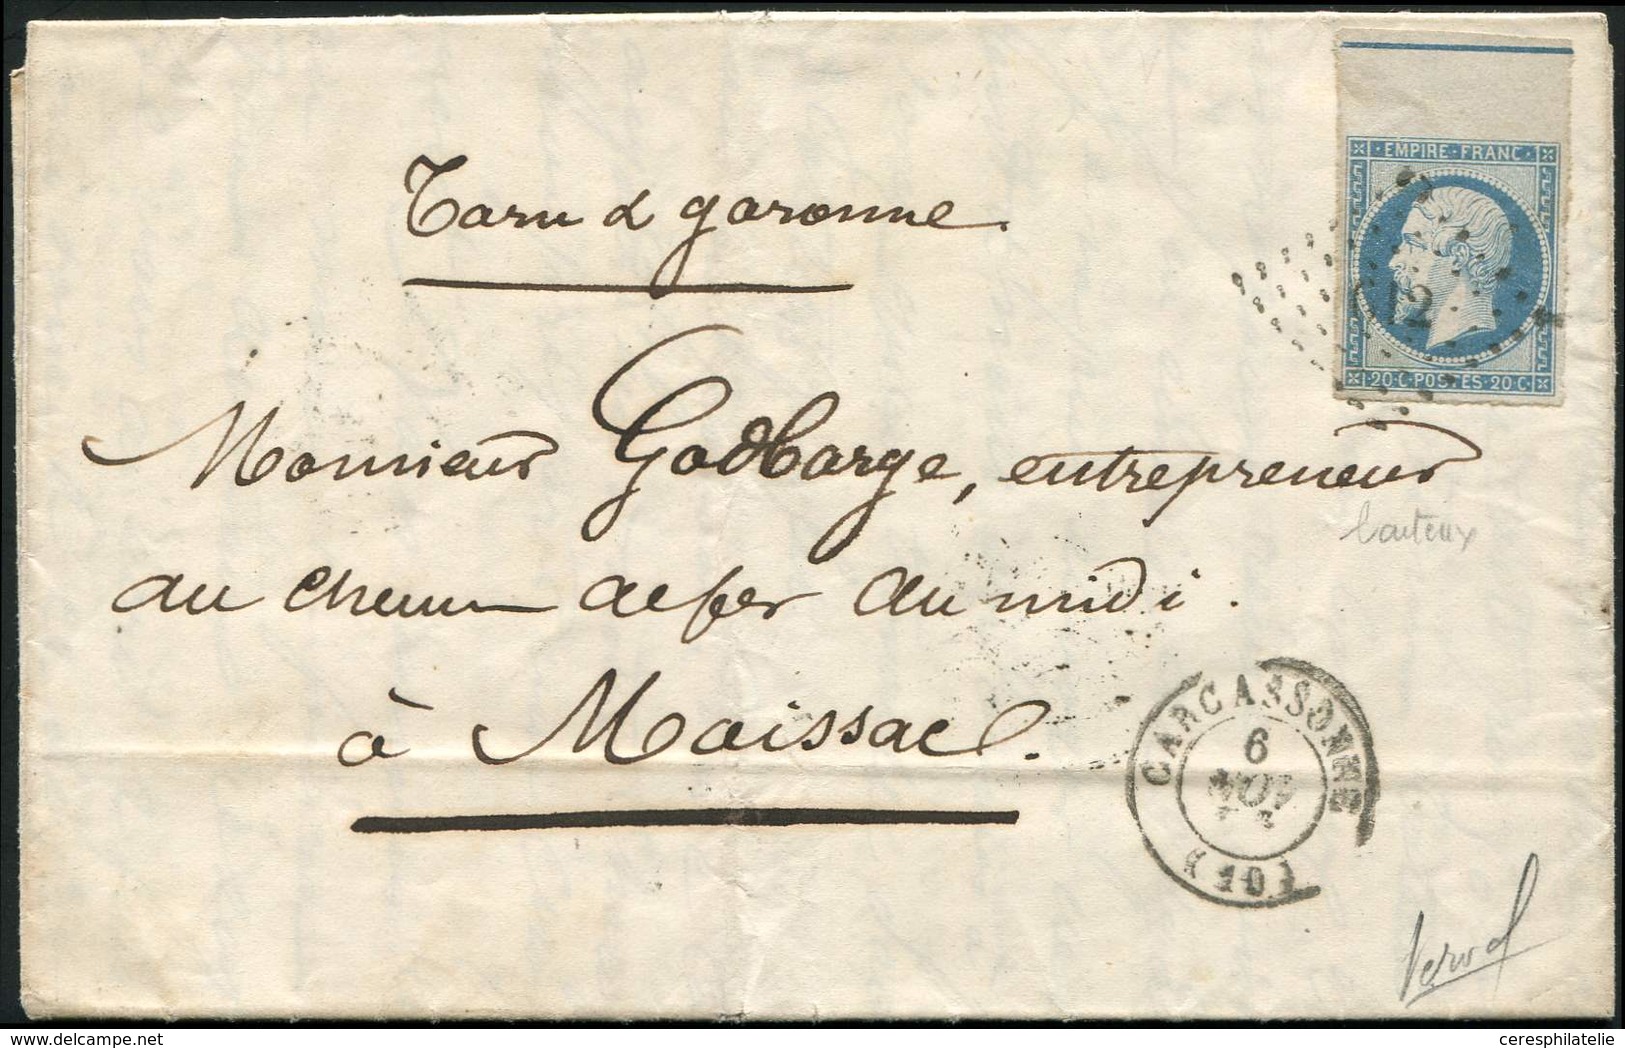 EMPIRE·FRANC·
20·C·POSTES·20·C·
Tarn & garonne.
Monsieur Godbarge, entrepreneur
au chemin de fer du midi.
à Moissac.
CARCASSONNE
6
NOV
(10)
www.delcampe.net
ceresphilatelie